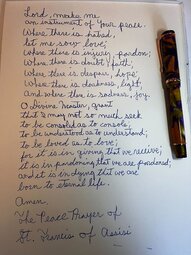 Lord, make me
an instrument of Your peace.
Where there is hatred,
let me sow love;
where there is injury, pardon;
Where there is doubt, faith;
Where there is despair, hope;
Where there is darkness, light,
And where there is sadness, joy.
O Divine Master, grant
that I may not so much seek
to be consoled as to console;
to be understood as to understand;
to be loved as to love;
for it is in giving that we receive;
it is in pardoning that we are pardoned;
and it is in dying that we are
born to eternal life.
Amen.
The Peace Prayer of
St. Francis of Assisi